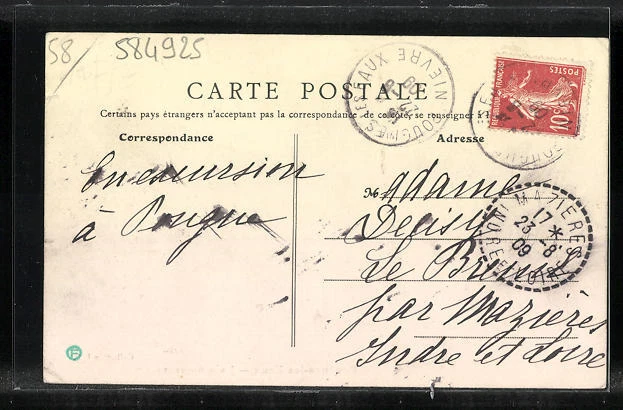 58 / 584925
CARTE POSTALE
Certains pays étrangers n'acceptent pas la correspondance de ce côté, se renseigner à la
Correspondance
Adresse
En excursion
à Pougue
Madame
Le
par Mazières
Indre et Loire
POUGUES-LES-EAUX NIEVRE
09
POSTES
REPUBLIQUE FRANÇAISE
10c
MAZIERES
17 *
23 -8
09
INDRE ET LOIRE